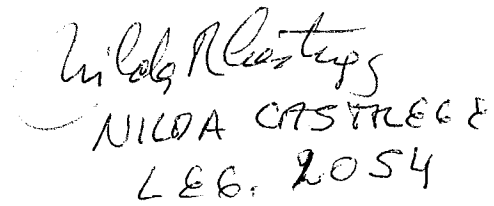 Nilda R Castrege
NILDA CASTREGE
LEG. 2054